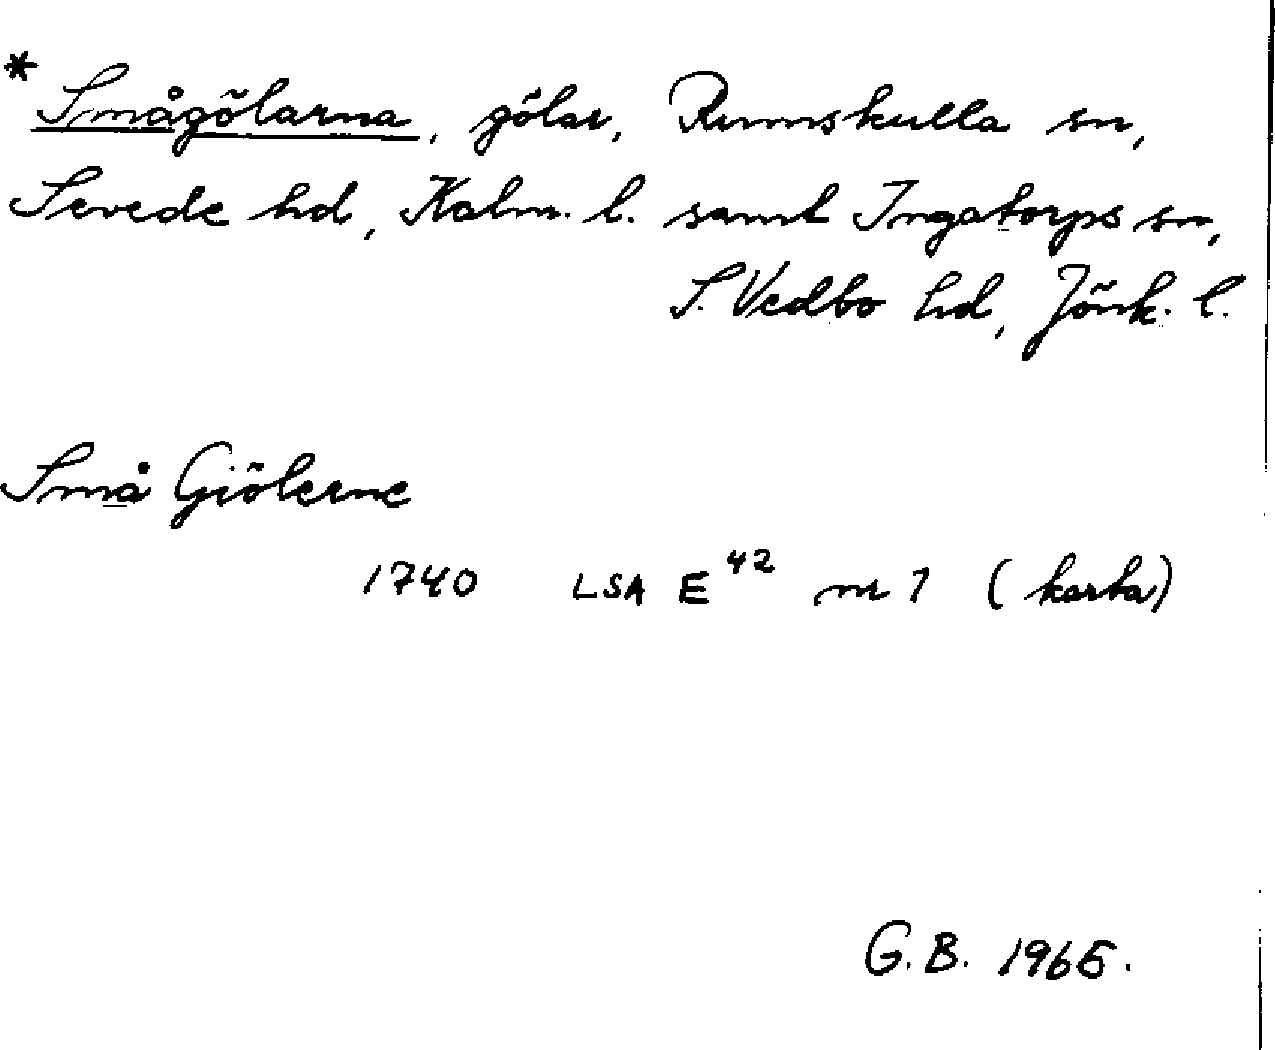 * Smågölarna, gölar, Rumskulla sn,
Sevede hd, Kalm. l. samt Ingatorps sn,
S. Vedbo hd, Jönk. l.
Små Giölerne
1740 LSA E 42 nr 1 (karta)
G.B. 1966.